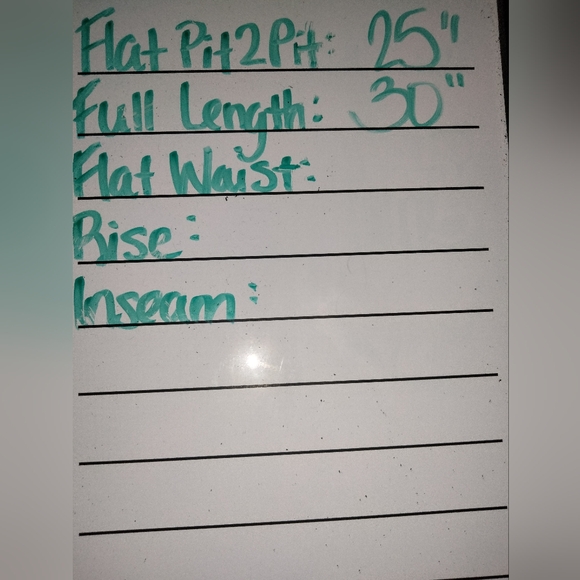 Flat Pit2Pit: 25"
Full Length: 30"
Flat Waist:
Rise:
Inseam: